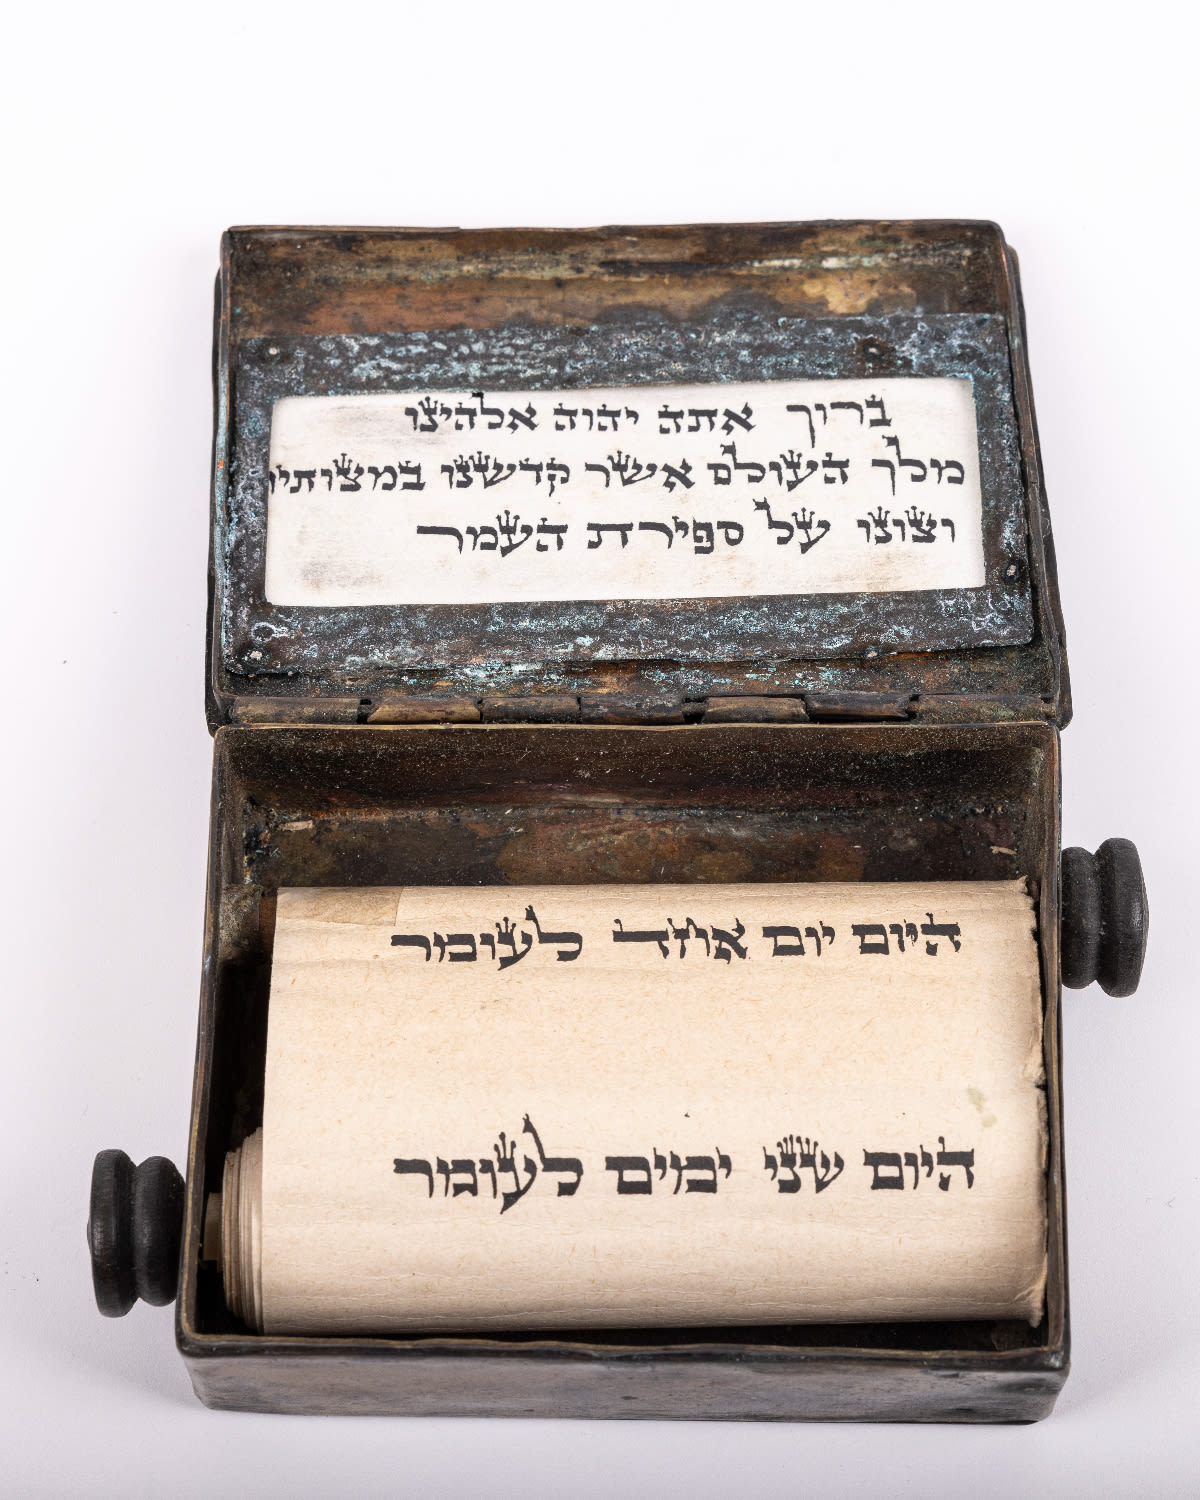 ברוך אתה יהוה אלהינו
מלך העולם אשר קדשנו במצותיו
וצונו על ספירת העמר
היום יום אחד לעומר
היום שני ימים לעומר